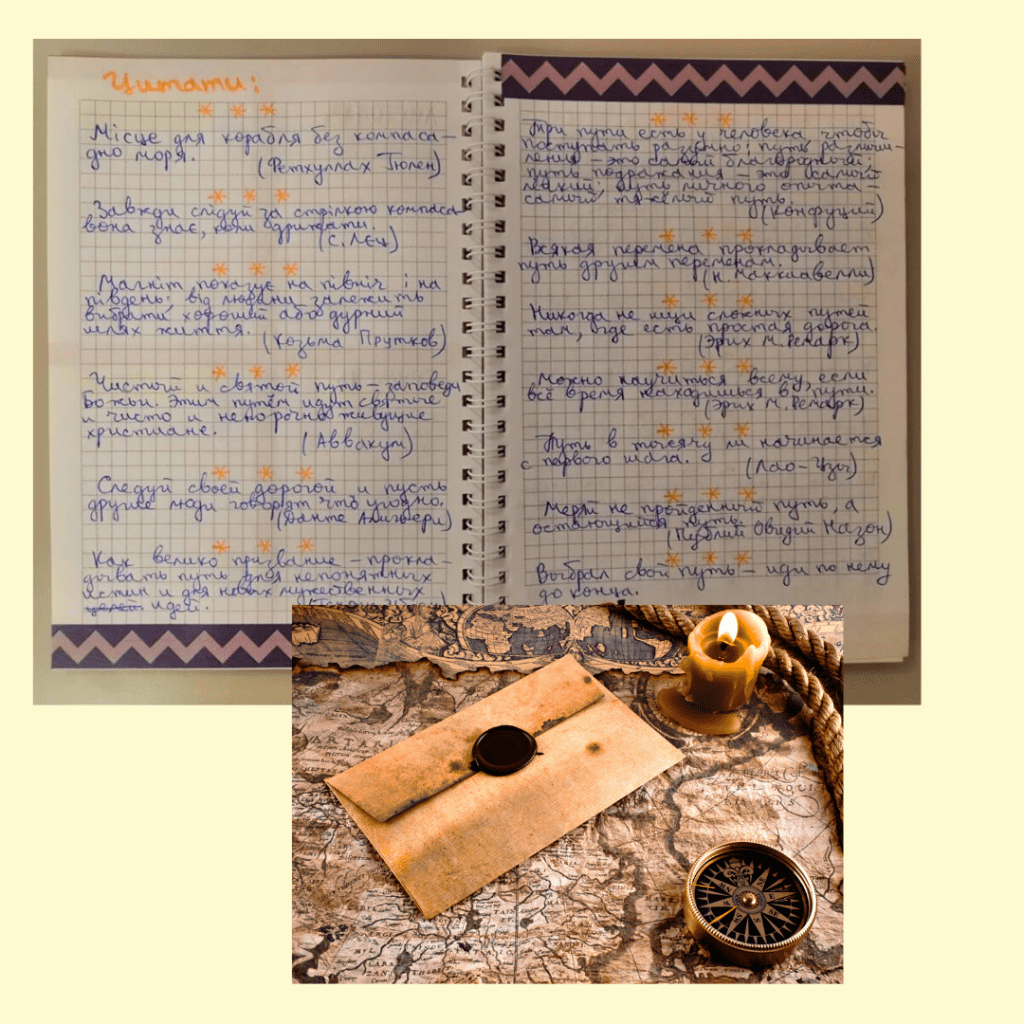 Цитати:
Місце для корабля без компаса –
дно моря.
(Фетхуллах Гюлен)
Завжди слідуй за стрілкою компаса
вона знає, коли дрижати.
(С. Лєц)
Магніт показує на північ і на
південь; від людини залежить
вибрати хороший або дурний
шлях життя.
(Козьма Прутков)
Чистый и святой путь – заповеди
Божьи. Этим путём идут святые
и чисто и непорочно живущие
христиане.
(Аввакум)
Следуй своей дорогой и пусть
другие люди говорят что угодно.
(Данте Алигьери)
Как велико призвание – прокла-
дывать путь для непонятных
истин и для новых мужественных
идей.
Три пути есть у человека, чтобы
поступать разумно: путь размыш-
ления – это самый благородный;
путь подражания – это самый
легкий; путь личного опыта –
самый тяжелый путь.
(Конфуций)
Всякая перемена прокладывает
путь другим переменам.
(Н. Маккиавелли)
Никогда не ищи сложных путей
там, где есть простая дорога.
(Эрих М. Ремарк)
Можно научиться всему, если
всё время находишься в пути.
(Эрих М. Ремарк)
Путь в тысячу ли начинается
с первого шага.
(Лао-Цзы)
Меряй не пройденный путь, а
остающийся путь.
(Публий Овидий Назон)
Выбрал свой путь – иди по нему
до конца.
ARTARI